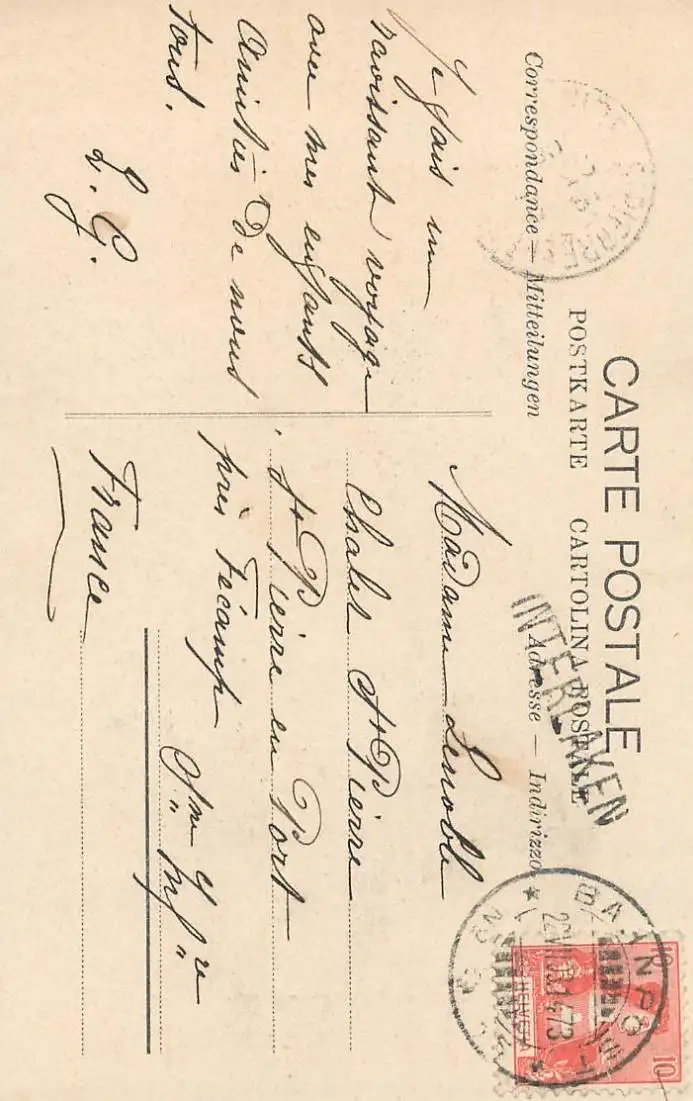 CARTE POSTALE
POSTKARTE CARTOLINA POSTALE
Correspondance — Mitteilungen
Adresse — Indirizzo.
INTERLAKEN
BAHNPOST
HELVETIA
10 10
Je fais un
ravissant voyage
avec mes enfants
Amitiés de nous
tous.
L. G.
Madame Lenoble
Chalet St Pierre
St Pierre en Port
près Fécamp
Sne Infre
France